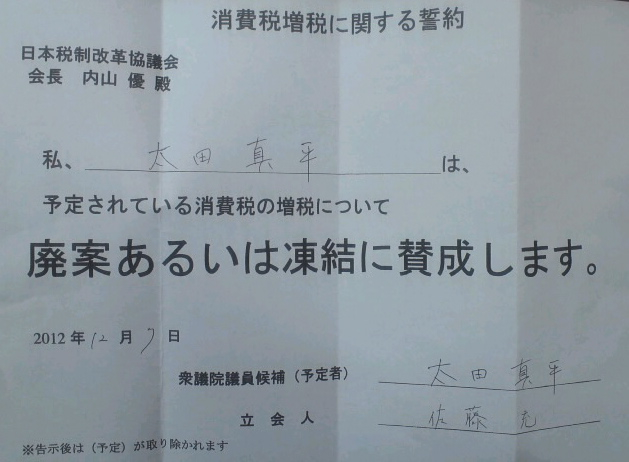 消費税増税に関する誓約
日本税制改革協議会
会長 内山 優 殿
私、 太田 真平 は、
予定されている消費税の増税について
廃案あるいは凍結に賛成します。
2012年12月7日
衆議院議員候補（予定者） 太田 真平
立会人 佐藤 充
※告示後は（予定）が取り除かれます